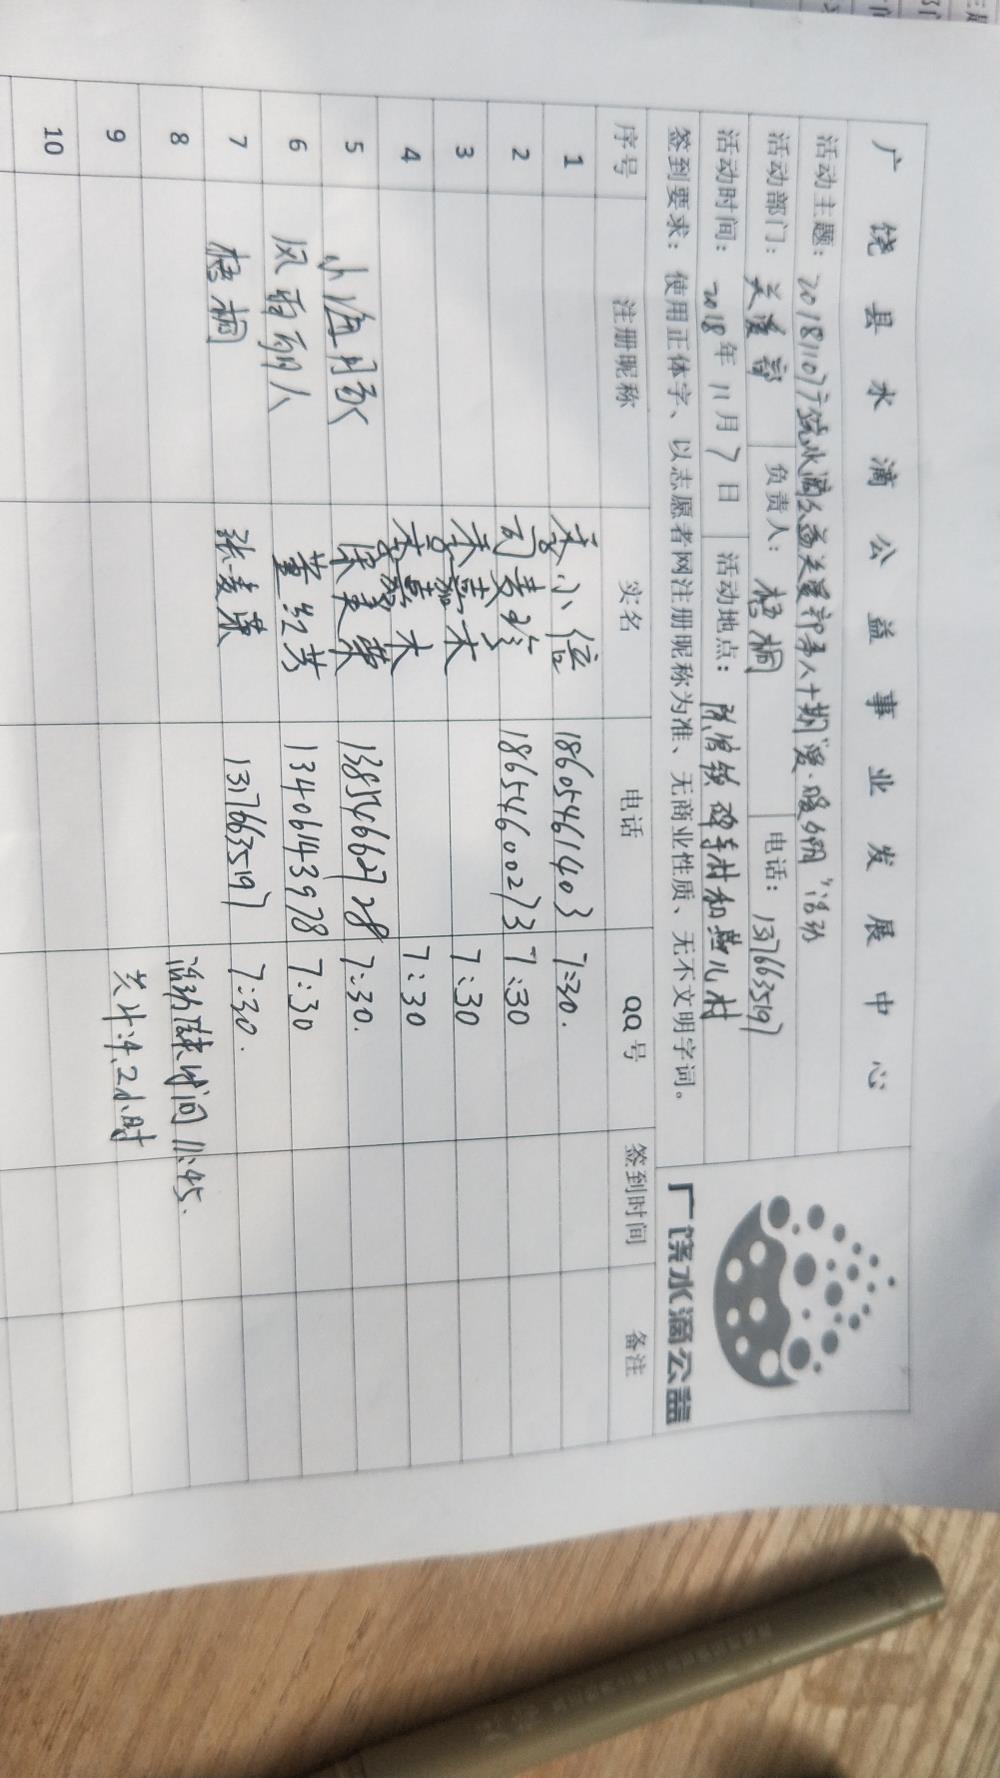 广饶县水滴公益事业发展中心
活动主题：20181107广饶水滴公益关爱部第八十期"爱·暖朝"活动
活动部门：关爱部 负责人：梧桐 电话：13176635197
活动时间：2018年11月7日 活动地点：
签到要求：使用正体字、以志愿者网注册昵称为准、无商业性质、无不文明字词。
广饶水滴公益
序号 注册昵称 实名 电话 QQ号 签到时间 备注
1 李小倍 18605461403 7:30.
2 18654600273 7:30
3 李嘉木 7:30
4 7:30
5 13854666728 7:30.
6 风雨丽人 董红芳 13406143978 7:30
7 梧桐 张麦荣 13176635197 7:30.
8 活动结束时间 11:45.
9 共计:4.2小时
10